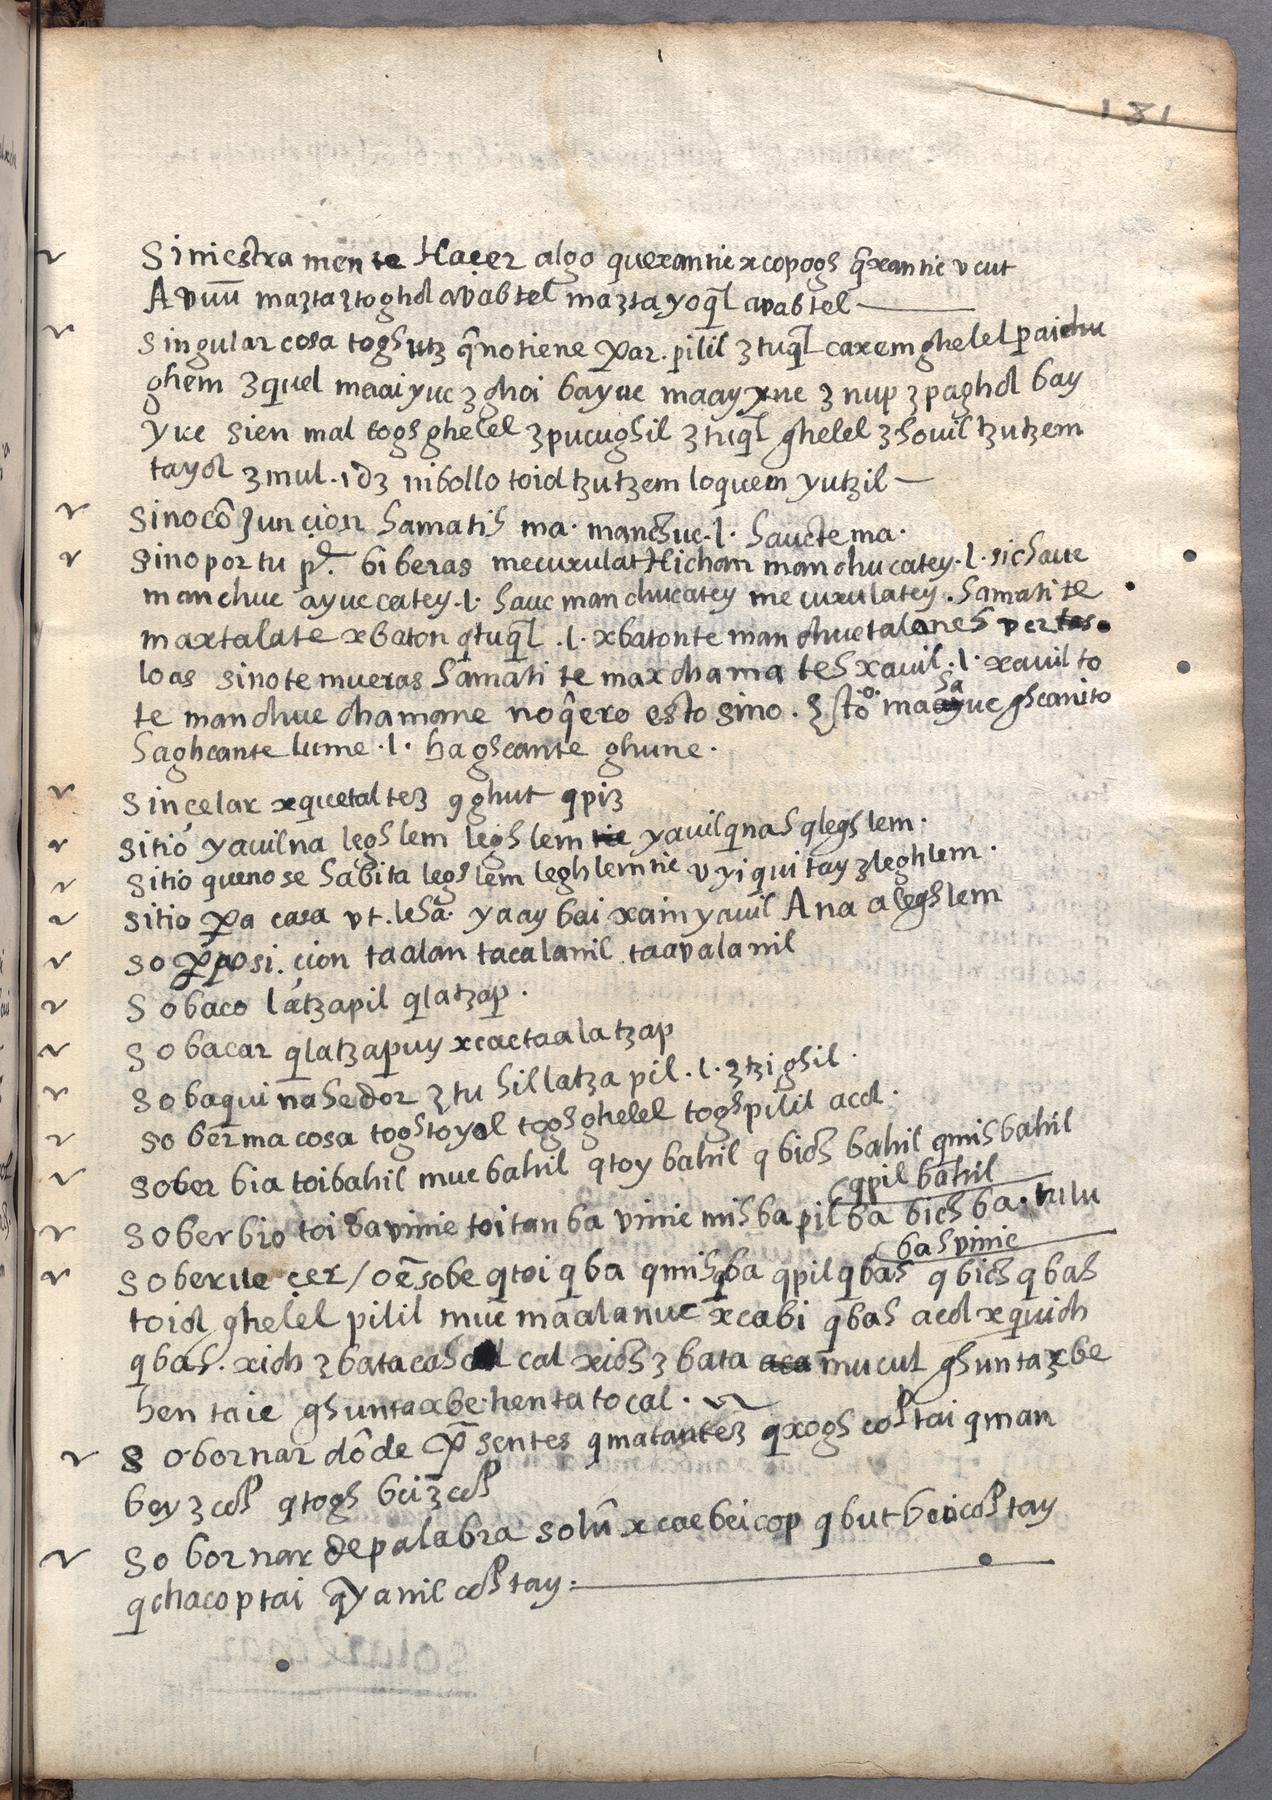 181
Siniestra mente Haçer algo quexantie xcopogh q̃xantie vcut
Avuū maztaztoghol avabtel maztayoq̃l avabtel
Singular cosa toghutz q̃notiene par. pilil ztuq̃l caxemghelel paichu
ghem zquel maaiyuc zghoi bayuc maayxne z nup zpaghol bay
yuc sien mal togh ghelel zpucughil ztuq̃l ghelel zhouil tzutzem
tayol zmul. nibollo toid tzutzem loquem yutzil
Sinocõjunçion hamatih ma. manchuc .l. hauctema.
Sinoportu biberas mecuxulat Hichan manchucatey .l. sichauc
manchuc ayuccatey .l. hauc manchucatey mecuxulatey. hamatite
maxtalate xbaton qtuq̃l .l. xbatonte manchuctalaneh
loas sinotemueras hamati te maxchama teh xauil .l. xauilto
te manchuc chamane noq̃ero esto sino. ghcanito
haghcante lume .l. haghcante ghune.
Sinçelar xquetaltez qghut qpiz
Sitio yauilna leghlem leghlem yauilqnah qleghlem.
Sitio quenose habita leghlem leghlemtic vyiquitay zleghlem.
Sitio pa casa vt. leha. yaay bai xainyauil Ana aleghlem
so pposi. çion taalan tacalanil taavalanil
Sobaco latzapil qlatzap.
Sobacar qlatzapuy xcactaalatzap
Sobaquina hedor ztu hillatzapil .l. ztzighil.
Soberma cosa toghtoyol toghghelel toghpilil acol.
Soberbia toibahil mucbahil qtoy bahil qbich bahil qmihbahil
qpil bahil
Soberbio toibavinic toitanba vinic mihba pilba bichba. tulu
bahvinic
Soberueçer / oẽsobe qtoi qba qmihqba qpilqbah qbichqbah
toid ghelel pilil muc maalanuc xcabi qbah acol xquich
qbah. xich zbatacah cal xich zbata mucul ghuntazbe
hentaic ghuntaxbe hentatocal.
Sobornar dõde psentes qmatantez qxogh coptai qman
bey zcop qtogh beizcop
Sobornar depalabra solũ xcacbeicop qbutbeicoptay
qchacoptai qyanil coptay: